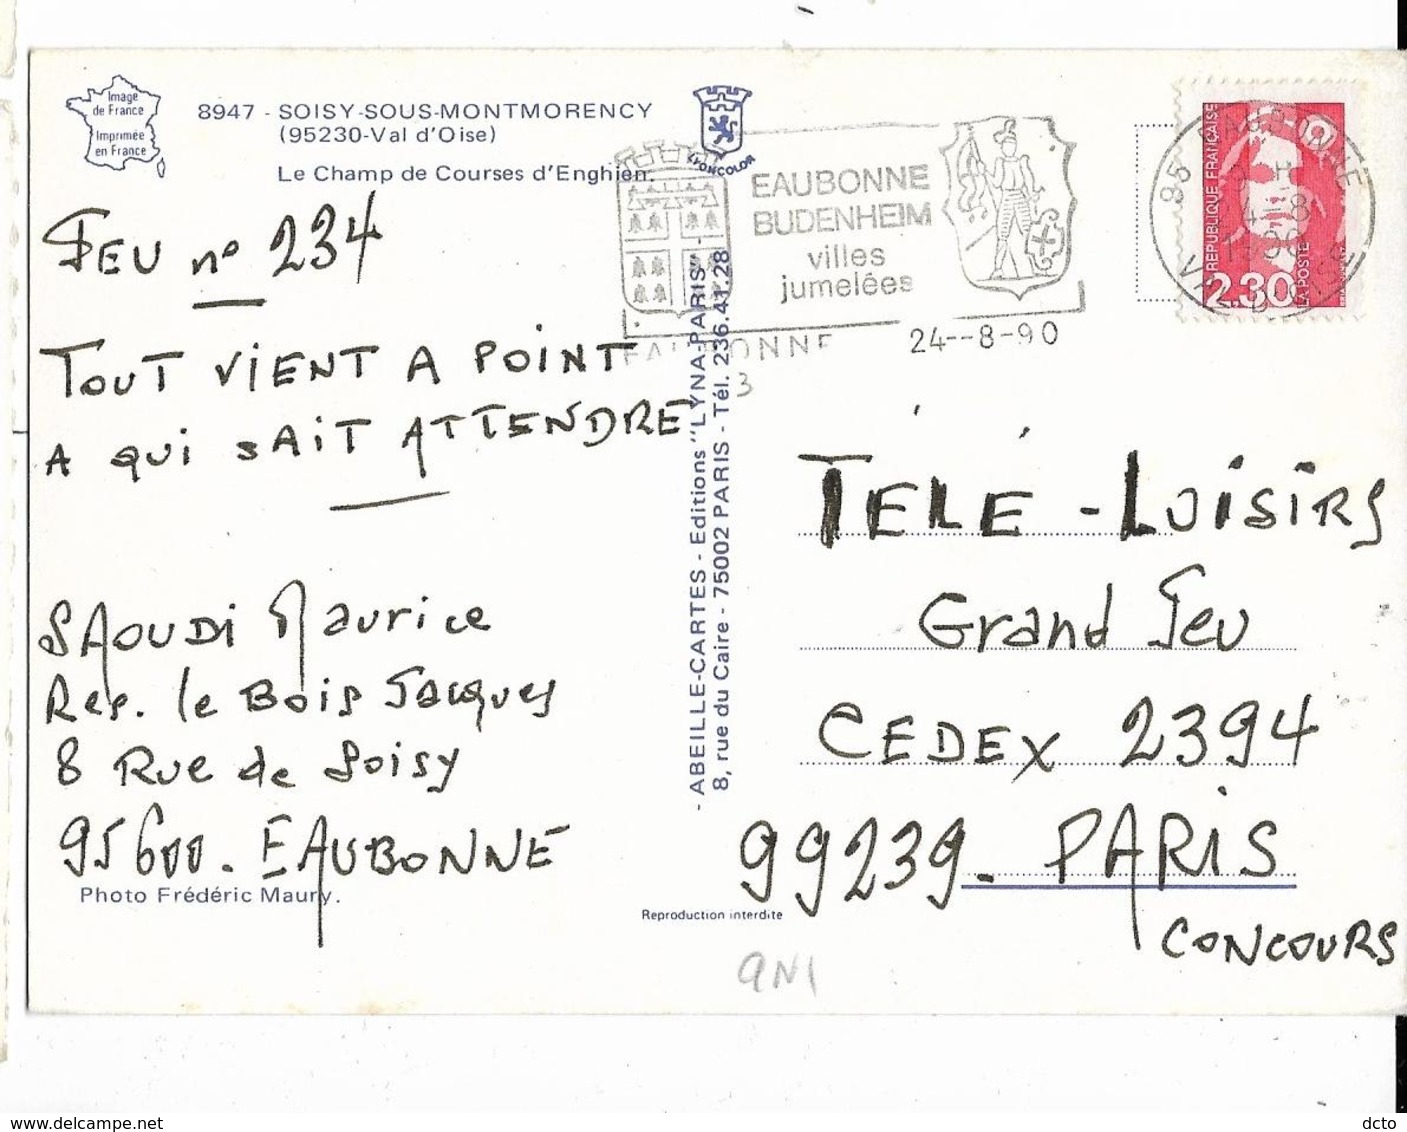 Image
de France
Imprimée
en France
8947 - SOISY-SOUS-MONTMORENCY
(95230-Val d'Oise)
Le Champ de Courses d'Enghien.
LYONCOLOR
JEU n° 234
TOUT VIENT A POINT
A QUI SAIT ATTENDRE
SAOUDI Maurice
Res. le Bois Jacques
8 Rue de Soisy
95600. EAUBONNE
Photo Frédéric Maury.
- ABEILLE-CARTES - Editions "LYNA-PARIS" -
8, rue du Caire - 75002 PARIS - Tél. 236.41.28
Reproduction interdite
EAUBONNE
BUDENHEIM
villes
jumelées
EAUBONNE
24--8-90
3
95 EAUBONNE
24-8
1990
VAL D'OISE
REPUBLIQUE FRANÇAISE
2.30
LA POSTE
TELE - LOISIRS
Grand Jeu
CEDEX 2394
99239. PARIS
CONCOURS
9N1
www.delcampe.net
dcto